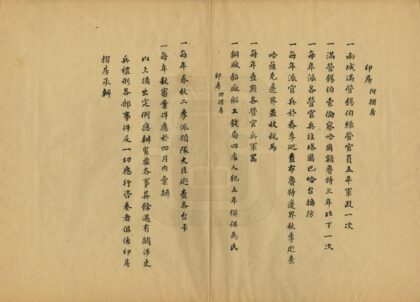 印房 附摺房
一兩城滿營錫伯綠營官員五年軍政一次
一滿營錫伯索倫察哈爾額魯特三年比丁一次
一每年派各營官兵往塔爾巴哈台換防
一每年派官兵於春季巡查布魯特邊界秋季巡查
哈薩克邊界並收稅馬
一每年查點各營官兵軍器
一銅廠鉛廠船工錢局四處人犯五年俱保為民
印房 附摺房
一每年春秋二季派領隊大臣巡查各台卡
一每年秋審案件應於四月內彙辦
以上摘出定例應辦緊要各事其餘遇有關涉吏
兵禮刑各部事件及一切應行咨奏者俱係印房
摺房承辦